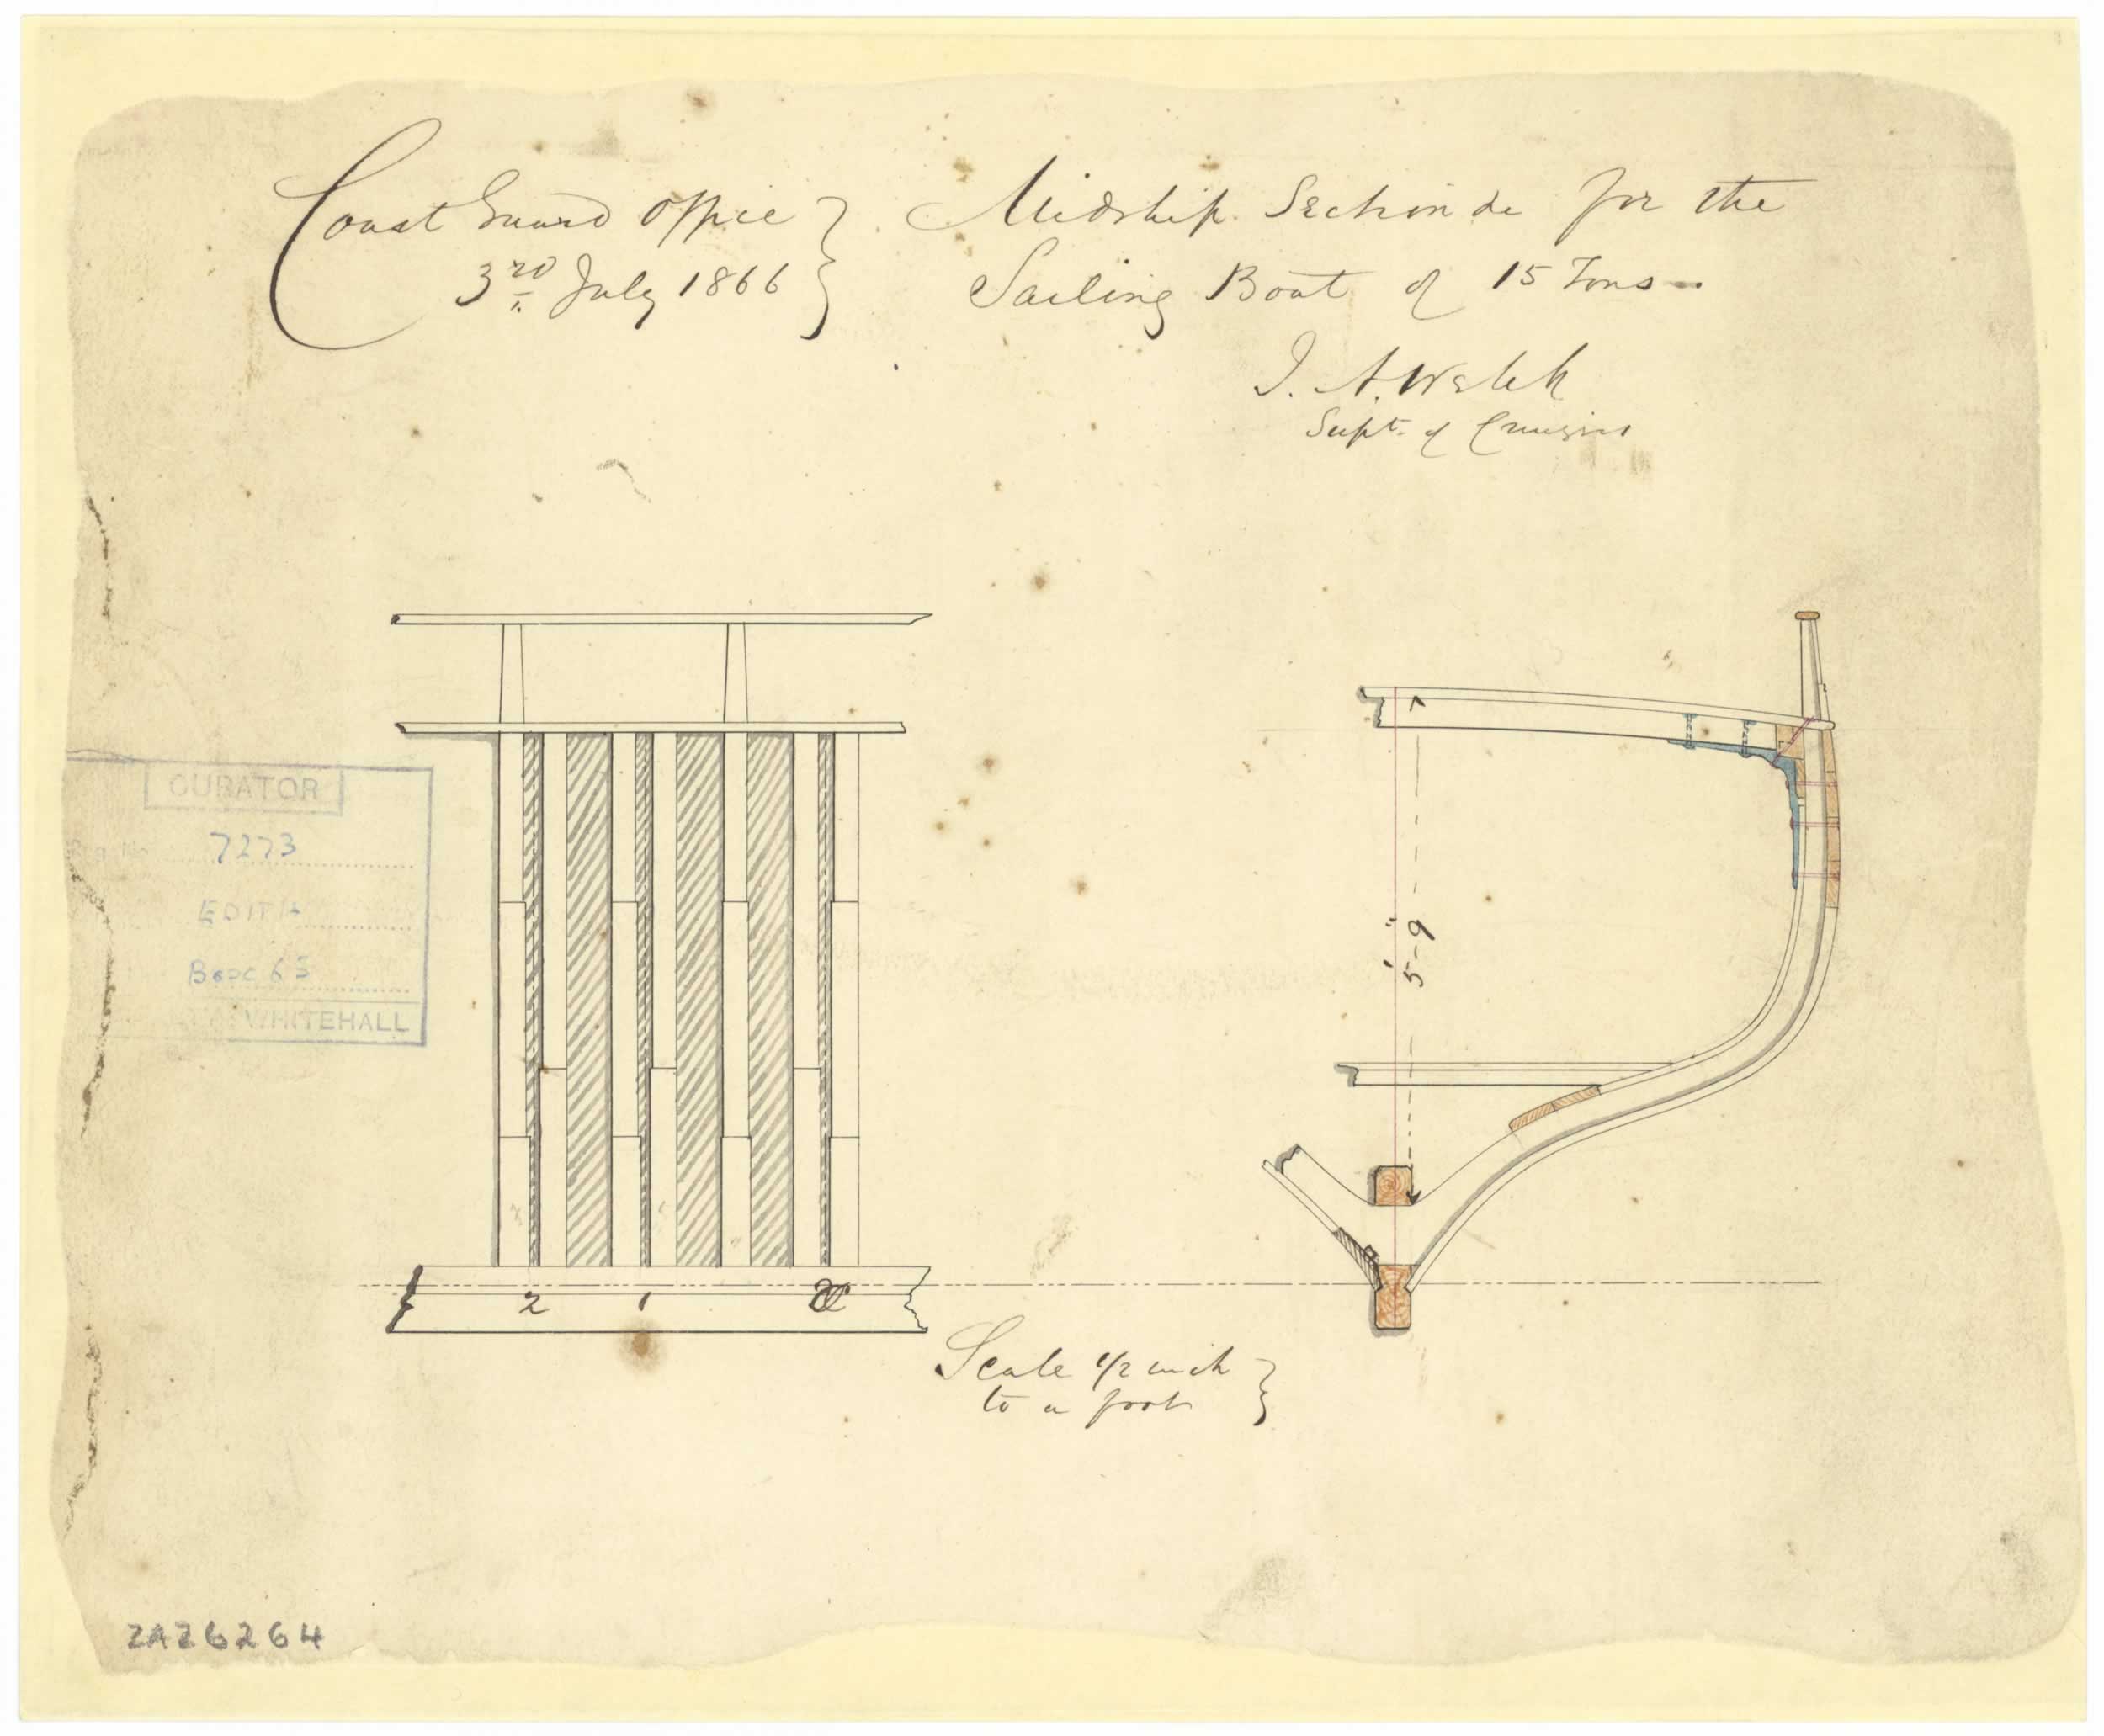 Coast Guard Office }
3rd July 1866 }
Midship Section &c for the
Sailing Boat of 15 Tons
J. A. Welch
Supt. of Cruizers
CURATOR
7273
EDITH
Box 65
WHITEHALL
5'-9"
2 1
Scale 1/2 inch }
to a foot }
ZAZ6264